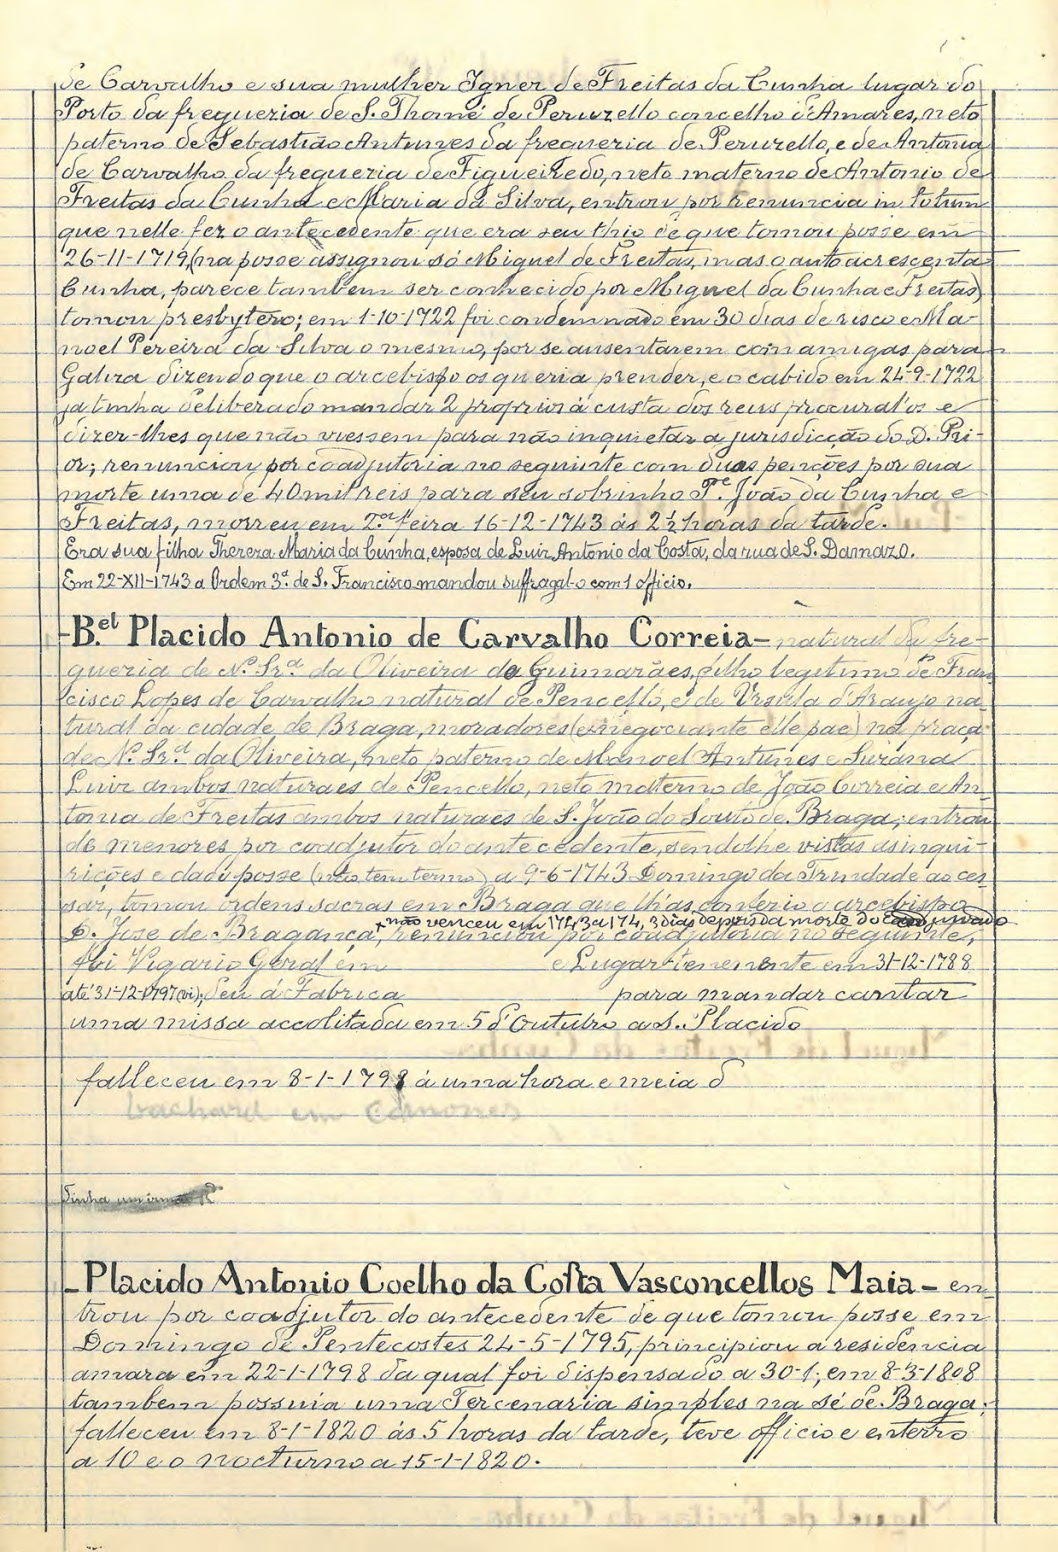 de Carvalho e sua mulher Igner de Freitas da Cunha lugar do
Porto da freguezia de S. Thomé de Peruzello concelho d'Amares, neto
paterno de Sebastião Antunes da freguezia de Peruzello, e de Antonia
de Carvalho da freguezia de Figueiredo, neto materno de Antonio de
Freitas da Cunha e Maria da Silva, entrou por renuncia in totum
que nelle fez o antecedente que era seu thio de que tomou posse em
26-11-1719, (na posse assignou só Miguel de Freitas, mas o auto acrescenta
Cunha, parece tambem ser conhecido por Miguel da Cunha e Freitas)
tomou presbytero; em 1-10-1722 foi condemnado em 30 dias de risco e Ma-
noel Pereira da Silva o mesmo, por se ausentarem com amigas para
Galiza dizendo que o arcebispo os queria prender, e o cabido em 24-9-1722
ja tinha deliberado mandar 2 proprios á custa dos reus procural'os e
dizer-lhes que não viessem para não inquietar a jurisdicção do D. Pri-
or; renunciou por coadjutoria no seguinte com duas penções por sua
morte uma de 40 mil reis para seu sobrinho P.e João da Cunha e
Freitas, morreu em 2.a feira 16-12-1743 ás 2½ horas da tarde.
Era sua filha Thereza Maria da Cunha, esposa de Luiz Antonio da Costa, da rua de S. Damazo.
Em 22-XII-1743 a Ordem 3.a de S. Francisco mandou suffragal-o com 1 officio.
-B.el Placido Antonio de Carvalho Correia- natural da fre-
guezia de N.a Sr.a da Oliveira de Guimarães, filho legitimo de Fran-
cisco Lopes de Carvalho natural de Pencello, e de Ursula d'Araujo na-
tural da cidade de Braga, moradores (e negociante elle pae) na praça
de N.a Sr.a da Oliveira, neto paterno de Manoel Antunes e Suzana
Luiz ambos naturaes de Pencello, neto materno de João Correia e An-
tonia de Freitas ambos naturaes de S. João do Souto de Braga; entrou
de menores por coadjutor do antecedente, sendo lhe vistas as inqui-
rições e dada posse (não tem termo) a 9-6-1743 Domingo da Trindade ao ces-
sar, tomou ordens sacras em Braga que lhas conferio o arcebispo
não venceu em 1743 a 174, 3 dias depois da morte do Coadjuvado
D. Jose de Bragança, renunciou por coadjutoria no seguinte,
foi Vigario Geral em e Lugar Tenente em 31-12-1788
até 31-12-1797 (vi); deu á Fabrica para mandar cantar
uma missa accolitada em 5 d'Outubro a S. Placido
falleceu em 8-1-1798 á uma hora e meia d
bacharel em Canones
Tinha um irmão
-Placido Antonio Coelho da Costa Vasconcellos Maia- en-
trou por coadjutor do antecedente de que tomou posse em
Domingo de Pentecostes 24-5-1795, principiou a residencia
amara em 22-1-1798 da qual foi dispensado a 30-1; em 8-3-1808
tambem possuia uma Tercenaria simples na sé de Braga;
falleceu em 8-1-1820 ás 5 horas da tarde, teve officio e enterro
a 10 e o nocturno a 15-1-1820.